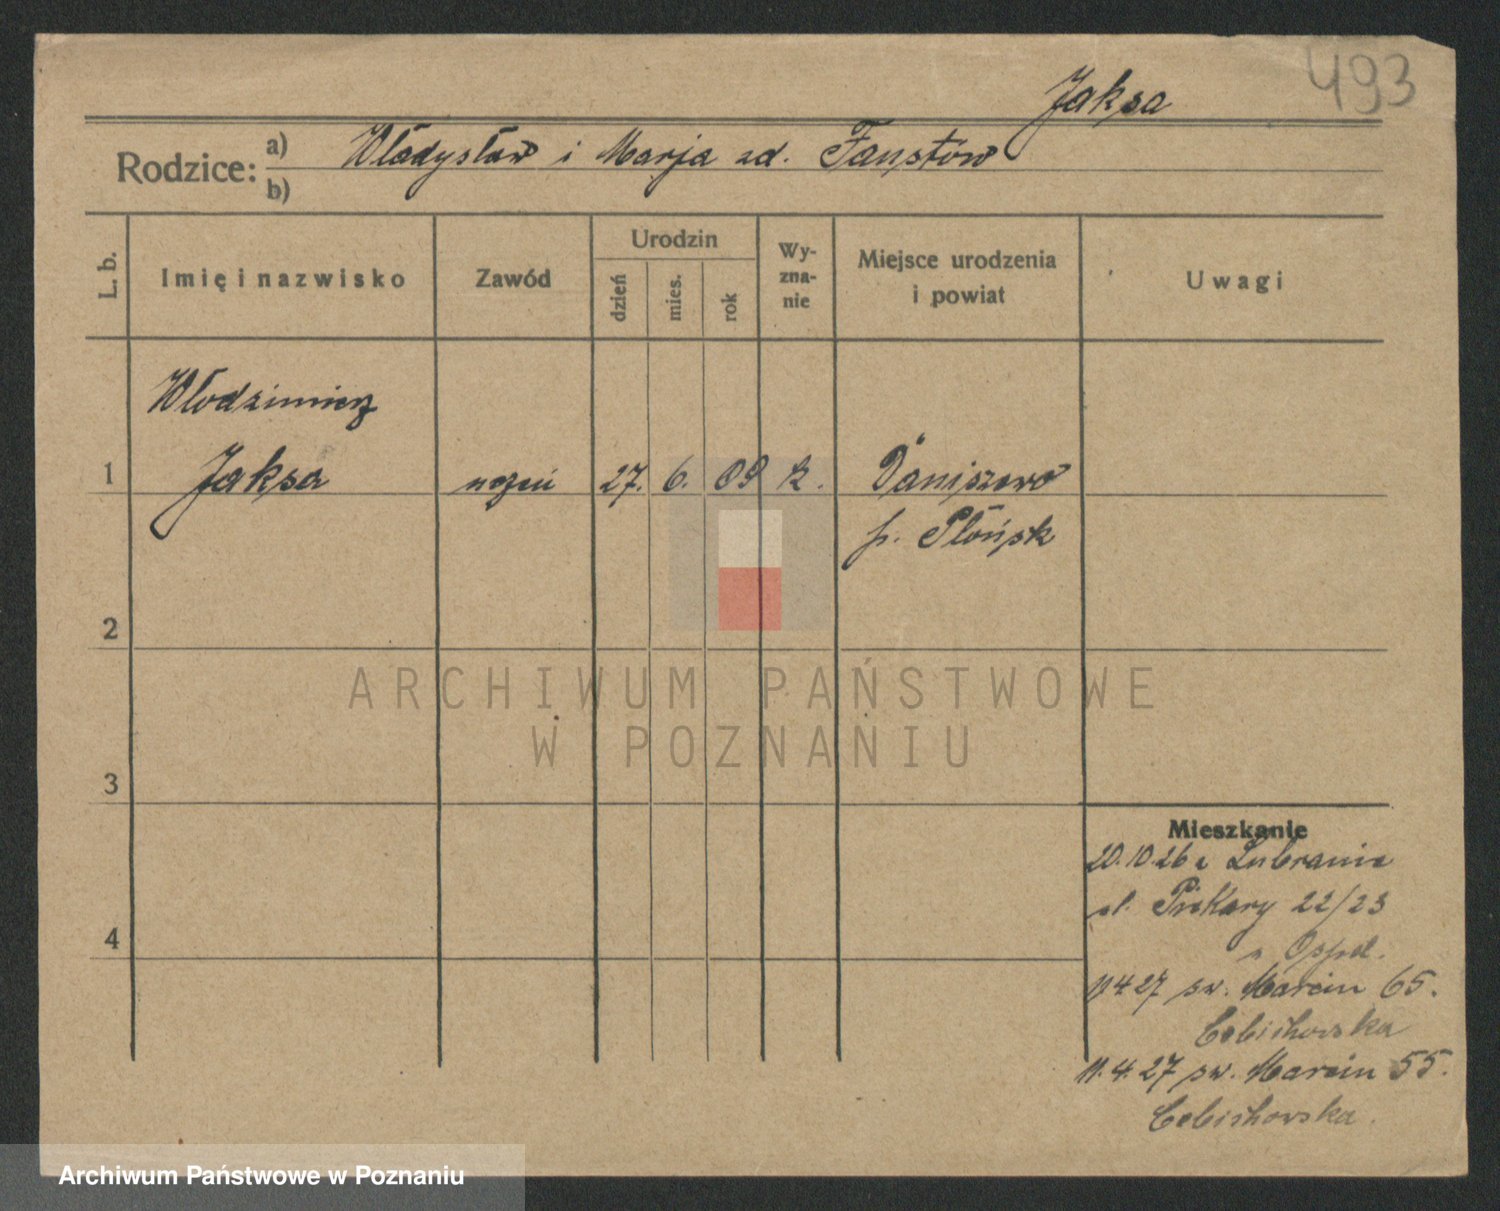 493
Jaksa
Rodzice:
a) Władysław i Marja zd. Faustów
b)
L. b.
Imię i nazwisko
Zawód
Urodzin
dzień
mies.
rok
Wy-
zna-
nie
Miejsce urodzenia
i powiat
Uwagi
Włodzimierz
1 Jaksa uczeń 27. 6. 09 k. Daniszewo
p. Płońsk
2
3
4
Mieszkanie
20.10.26 z Lubrania
ul. Piekary 22/23
11 4 27 św. Marcin 65.
Cebichowska
11.4.27 św. Marcin 55.
Cebichowska.
ARCHIWUM PAŃSTWOWE
W POZNANIU
Archiwum Państwowe w Poznaniu